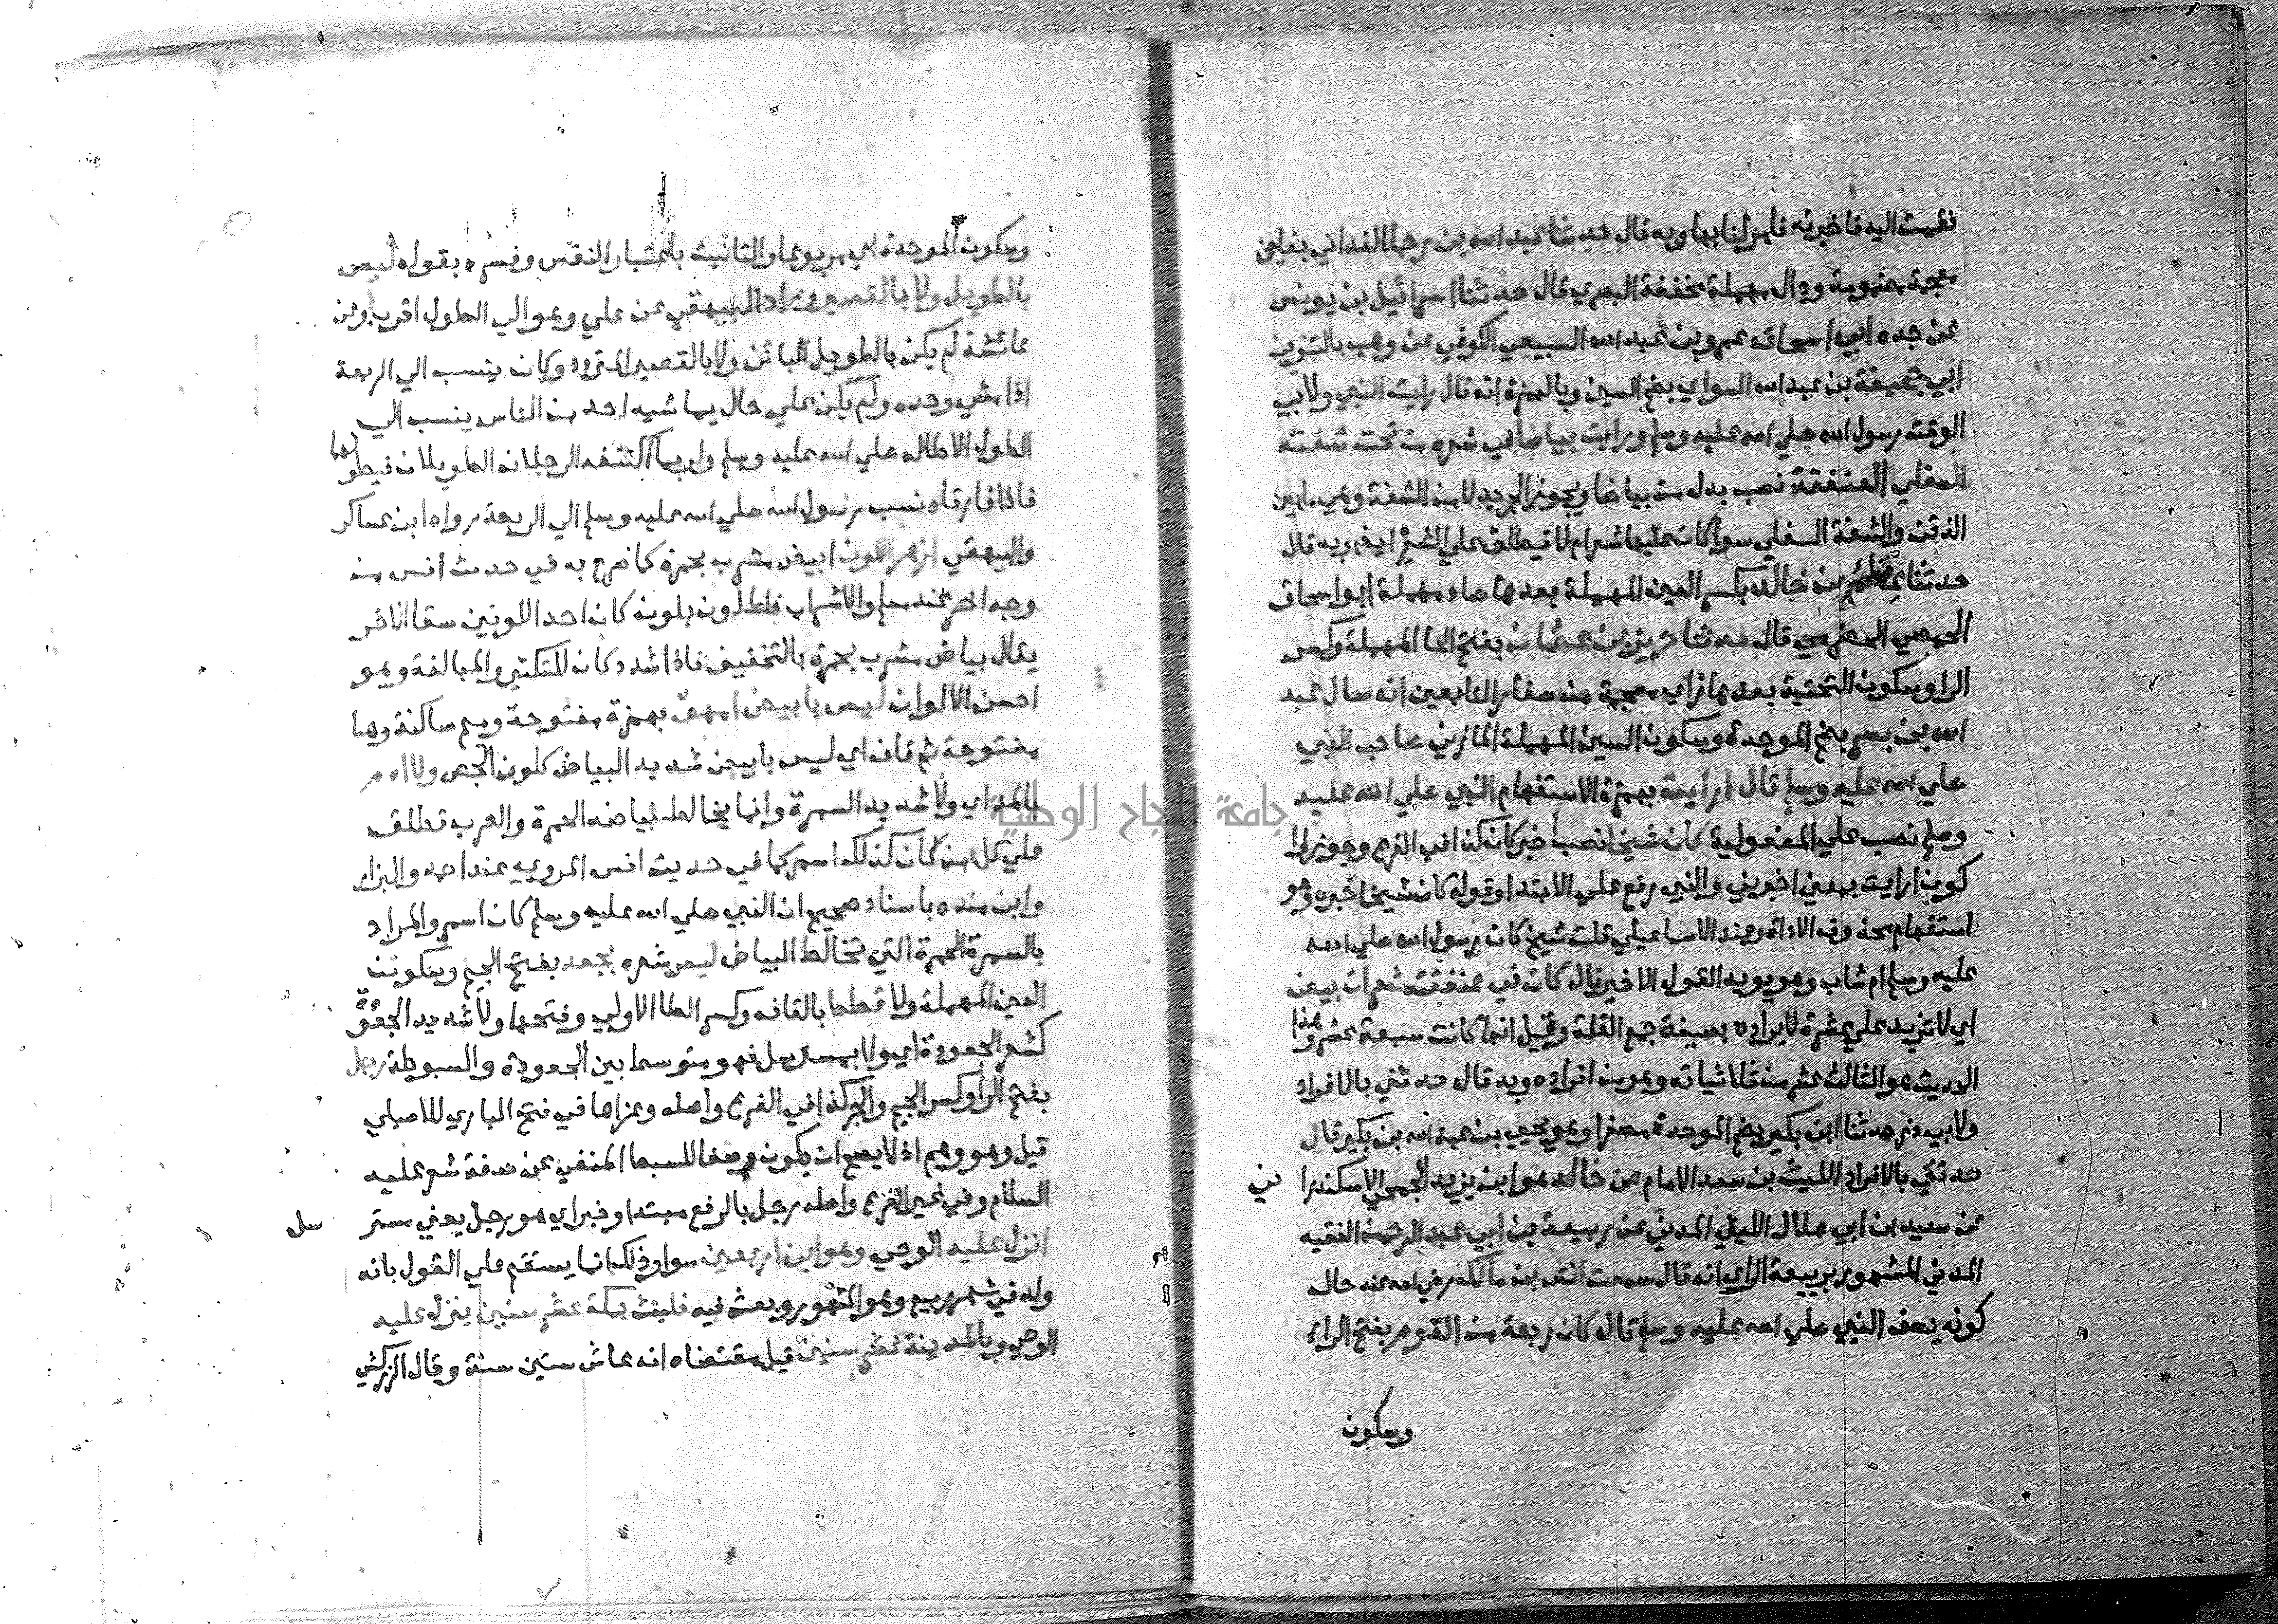 فقمت اليه فاخبرته فامر لنا بها وبه قال حدثنا عبد الله بن رجا الغداني بغين
معجمة مضمومة ودال مهملة مخففة البصري قال حدثنا اسرائيل بن يونس
عن جده ابي اسحاق عمرو بن عبد الله السبيعي الكوفي عن وهب بالتنوين
ابي جحيفة بن عبد الله السواي بضم السين وبالهمزة انه قال رايت النبي ولابي
الوقت رسول الله صلي الله عليه وسلم ورايت بياضا في شعره من تحت شفته
السفلي العنفقة نصب بدل من بياضا ويجوز الجر بدلا من الشفة وهي ما بين
الذقن والشفة السفلي سوا كان عليها شعر ام لا قيطلق علي الشعر ايضا وبه قال
حدثنا عصام بن خالد بكسر العين المهملة بعدها صاد مهملة ابو اسحاق
الحمصي الحضرمي قال حدثنا حريز بن عثمان بفتح الحا المهملة وكسر
الرا وسكون التحتية بعدها زاي معجمة من صغار التابعين انه سال عبد
الله بن بسر بضم الموحدة وسكون السين المهملة المازني صاحب النبي
صلي الله عليه وسلم قال ارايت بهمزة الاستفهام النبي صلي الله عليه
وسلم نصب علي المفعولية كان شيخا نصب خبر كان كذا في الفرع وجوز
كون ارايت بمعني اخبرني والنبي رفع علي الابتدا وقوله كان شيخا خبره وهو
استفهام محذوف الاداة وعند الاسماعيلي قلت شيخ كان رسول الله صلي الله
عليه وسلم ام شاب وهو يويد القول الاخير قال كان في عنفقته شعرات بيض
اي لا تزيد علي عشرة لايراده بصيغة جمع القلة وقيل انها كانت سبعة عشر وهذا
الحديث هو الثالث عشر من ثلاثياته وهو من افراده وبه قال حدثني بالافراد
ولابي ذر حدثنا ابن بكير بضم الموحدة مصغرا وهو يحيي بن عبد الله بن بكير قال
حدثني بالافراد الليث بن سعد الامام عن خالد هو ابن يزيد الجمحي الاسكندراني
عن سعيد بن ابي هلال الليثي المدني عن ربيعة بن ابي عبد الرحمن الفقيه
المدني المشهور بربيعة الراي انه قال سمعت انس بن مالك رضي الله عنه حال
كونه يصف النبي صلي الله عليه وسلم قال كان ربعة من القوم بفتح الراء
وسكون
وسكون الموحدة اي مربوعا والتانيث باعتبار النفس وفسره بقوله ليس
بالطويل ولا بالقصير وزاد البيهقي عن علي وهو الي الطول اقرب وعن
عائشة لم يكن بالطويل البائن ولا بالقصير المتردد وكان ينسب الي الربعة
اذا مشي وحده ولم يكن علي حال يماشيه احد من الناس ينسب الي
الطول الا طاله صلي الله عليه وسلم ولربما اكتنفه الرجلان الطويلان فيطولهما
فاذا فارقاه نسب رسول الله صلي الله عليه وسلم الي الربعة رواه ابن عساكر
والبيهقي ازهر اللون ابيض مشرب بحمرة كما صرح به في حديث انس من
وجه اخر عند مسلم والاشراب خلط لون بلون كان احد اللونين سقا الاخر
يقال بياض مشرب بحمرة بالتخفيف فاذا شدد كان للتكثير والمبالغة وهو
احسن الالوان ليس بابيض امهق بهمزة مفتوحة وميم ساكنة وها
مفتوحة ثم قاف اي ليس بابيض شديد البياض كلون الجص ولا ادم
بالمد اي ولا شديد السمرة وانما يخالط بياضه الحمرة والعرب تطلق
علي كل من كان كذلك اسمر كما في حديث انس المروي عند احمد والبزار
وابن منده باسناد صحيح ان النبي صلي الله عليه وسلم كان اسمر والمراد
بالسمرة الحمرة التي تخالط البياض ليس شعره بجعد بفتح الجيم وسكون
العين المهملة ولا قطط بالقاف وكسر الطا الاولي وفتحها ولا شديد الجعودة
كشعر الجعودة اي ولا بمسترسل فهو متوسط بين الجعودة والسبوطة رجل
بفتح الرا وكسر الجيم والجر كذا في الفرع واصله وعزاها في فتح الباري للاصيلي
قيل وهو وهم اذ لا يصح ان يكون وصفا للسبط المنفي عن صفة شعره عليه
السلام وفي غير الفرع واصله رجل بالرفع مبتدا وخبر اي هو رجل يعني مستر
سل
انزل عليه الوحي وهو ابن اربعين سوا وذلك انما يستقيم علي القول بانه
ولد في شهر ربيع وهو المشهور وبعث فيه فلبث بمكة عشر سنين ينزل عليه
الوحي وبالمدينة عشر سنين قيل مقتضاه انه عاش ستين سنة وقال الزركشي
جامعة النجاح الوطنية